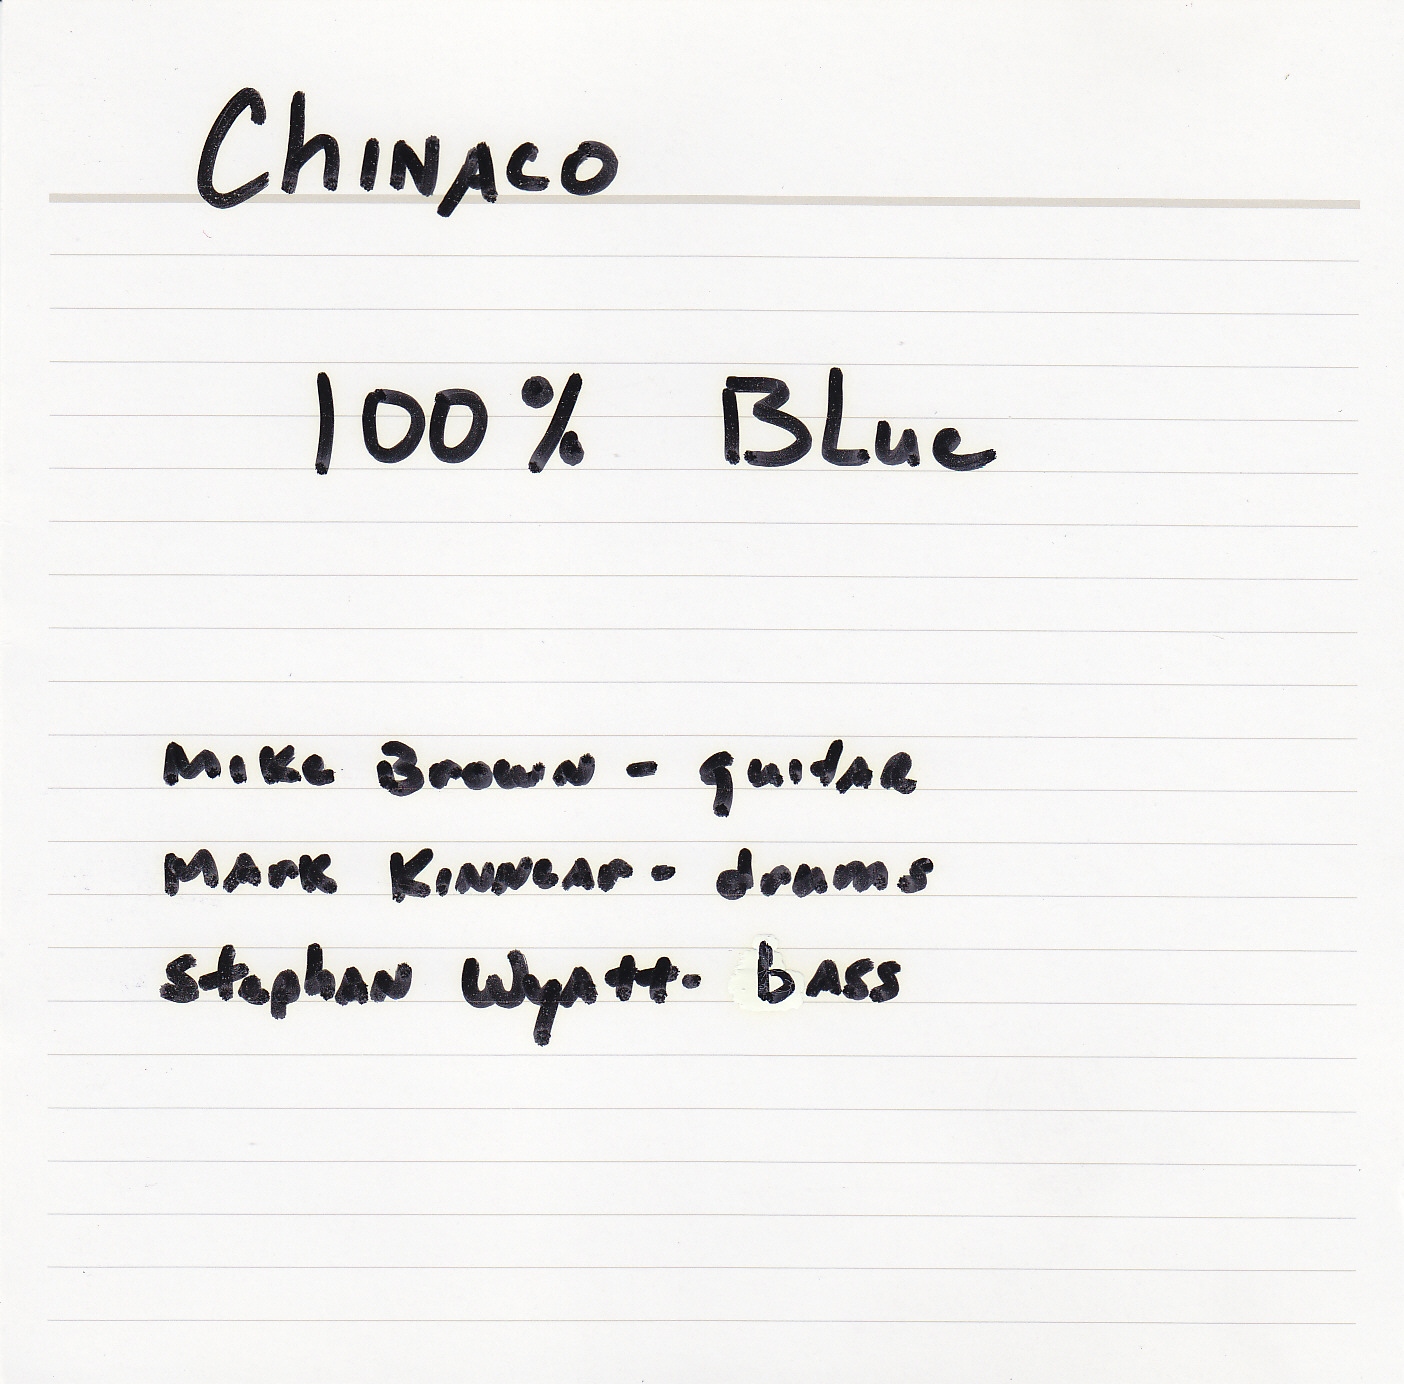 Chinaco
100% Blue
Mike Brown - guitar
Mark Kinnear - drums
Stephan Wyatt - bass